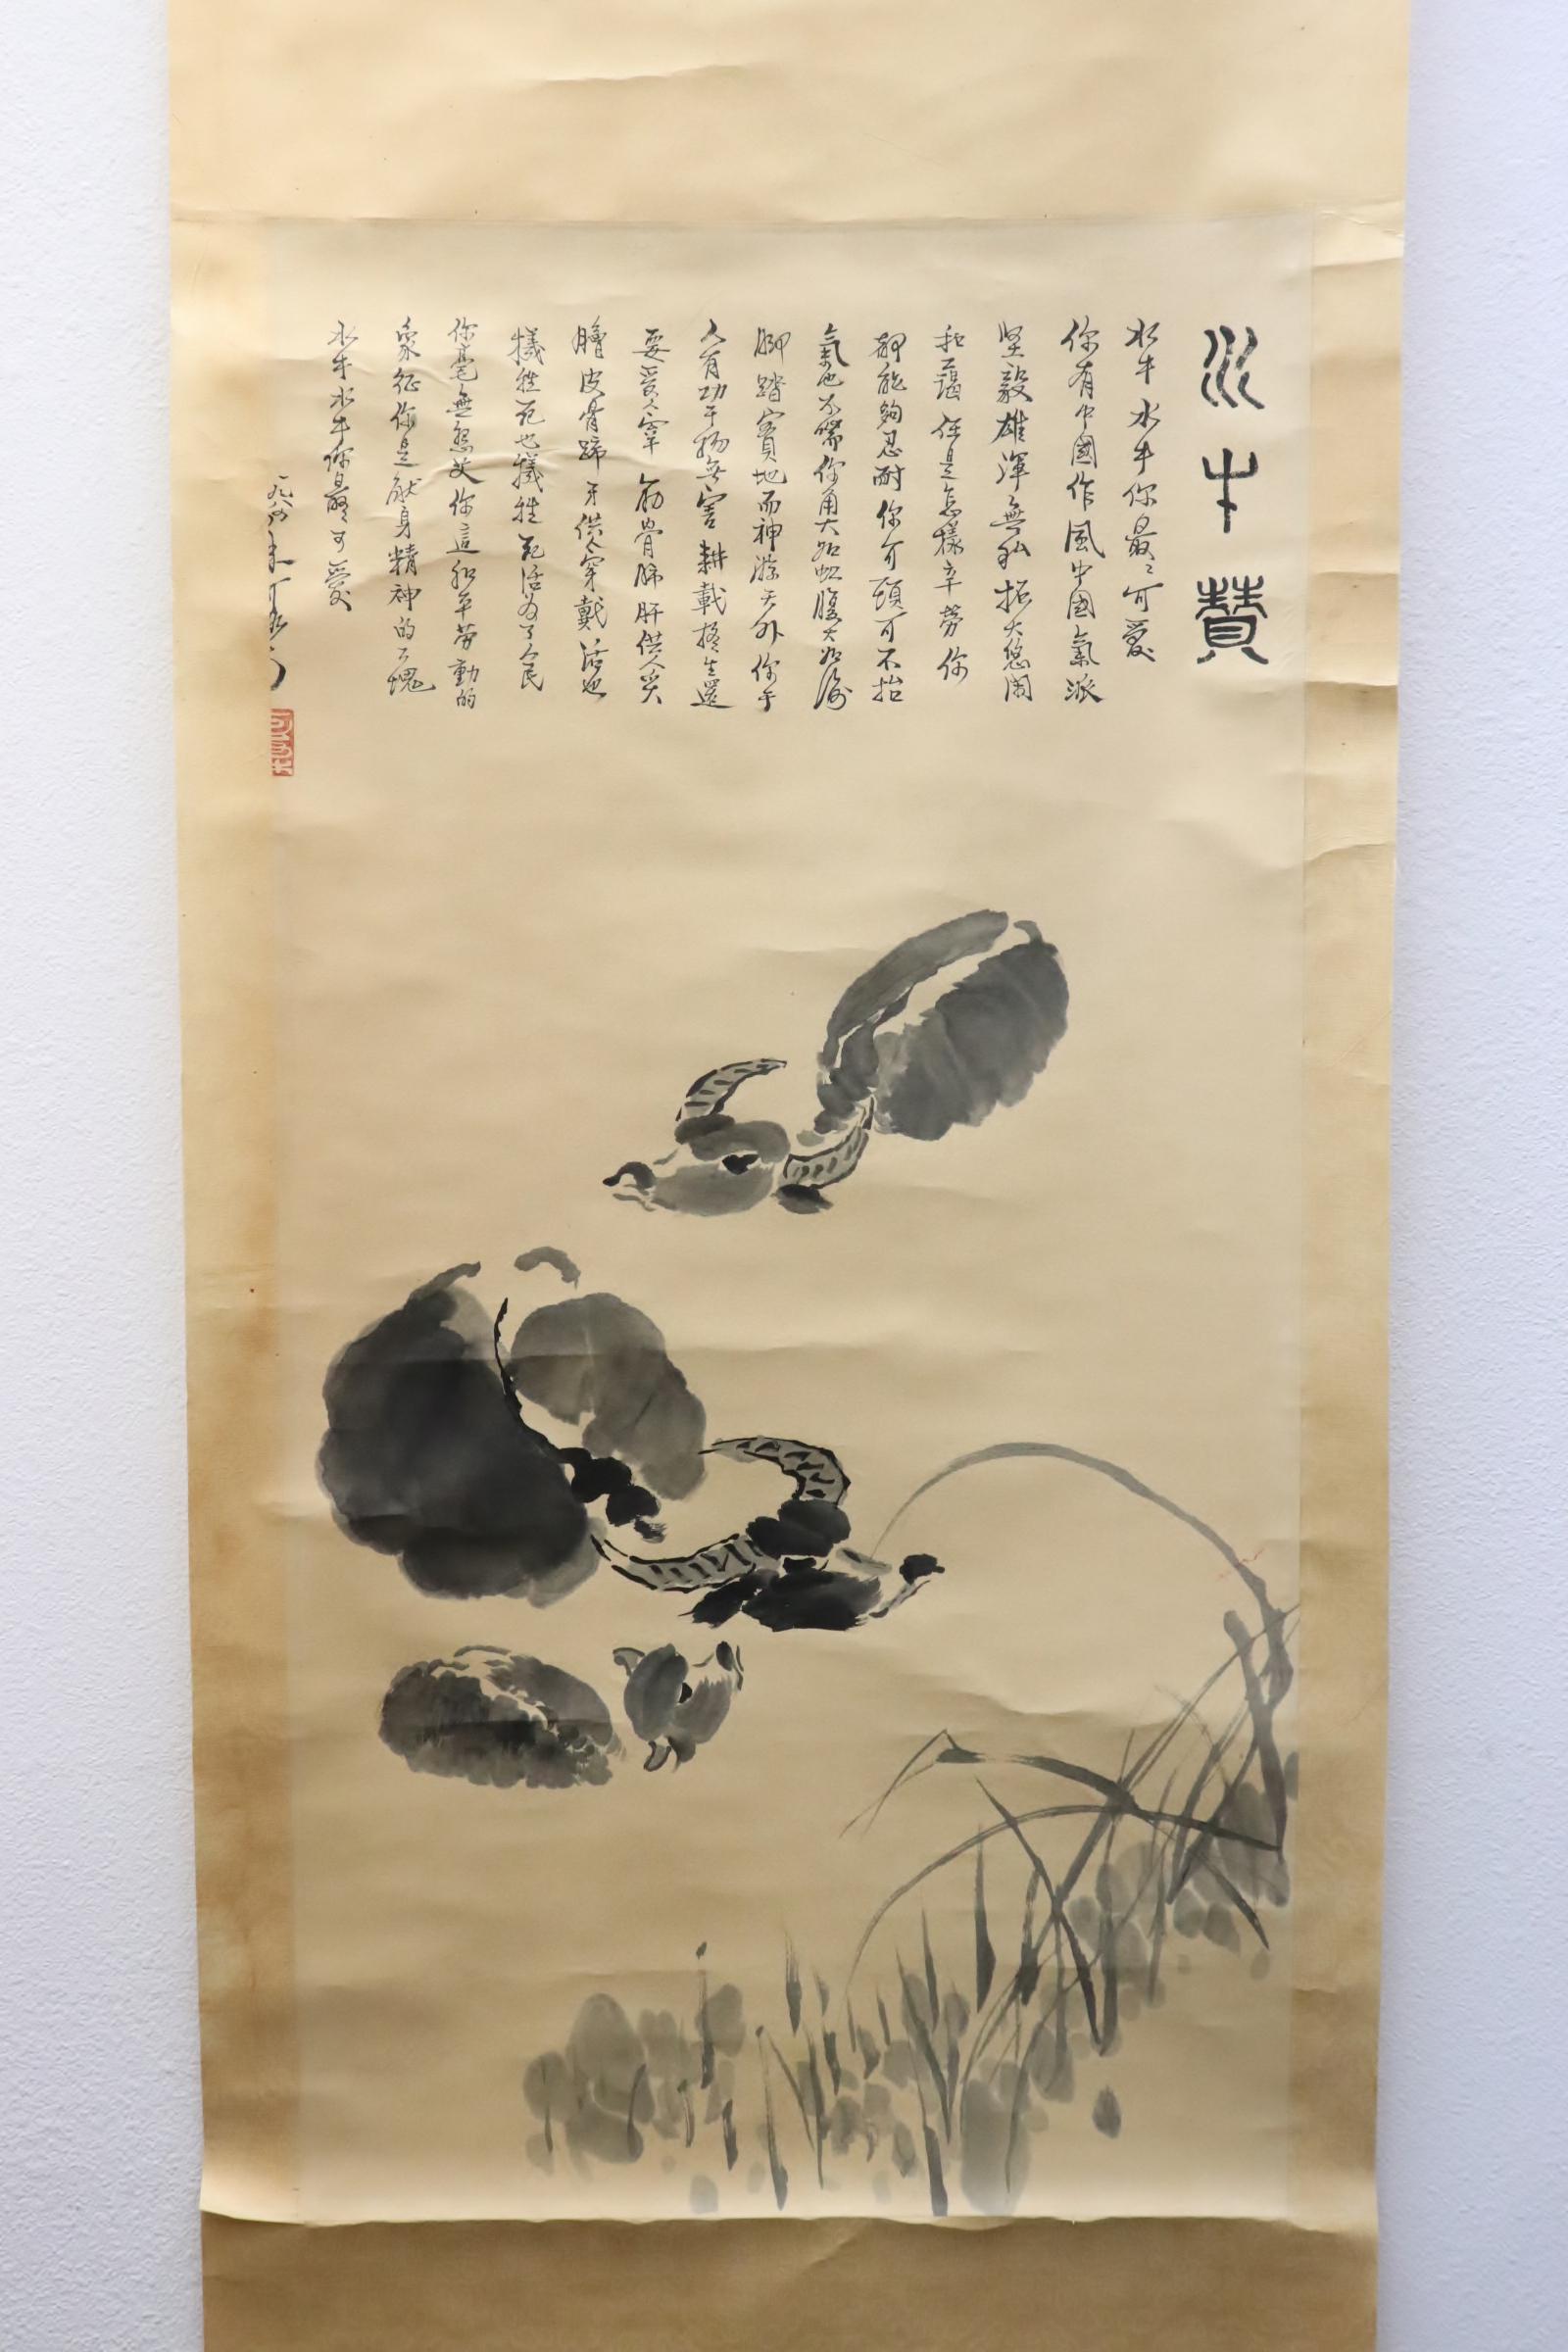 水牛赞
水牛水牛你最最可爱
你有中國作風中國氣派
坚毅雄渾無私拓大悠閑
和藹任是怎樣辛劳你
都能夠忍耐你可頭可不抬
氣也不喘你角大如虹腹大如海
脚踏實地而神游天外你于
人有功于物無害耕載終生還
要受人宰筋骨肺肝供人炙
膾皮骨蹄牙供人穿戴活也
犧牲死也犧牲死活為了人民
你毫無怨艾你這和平劳動的
象征你是献身精神的大塊
水牛水牛你最最可愛
一九八